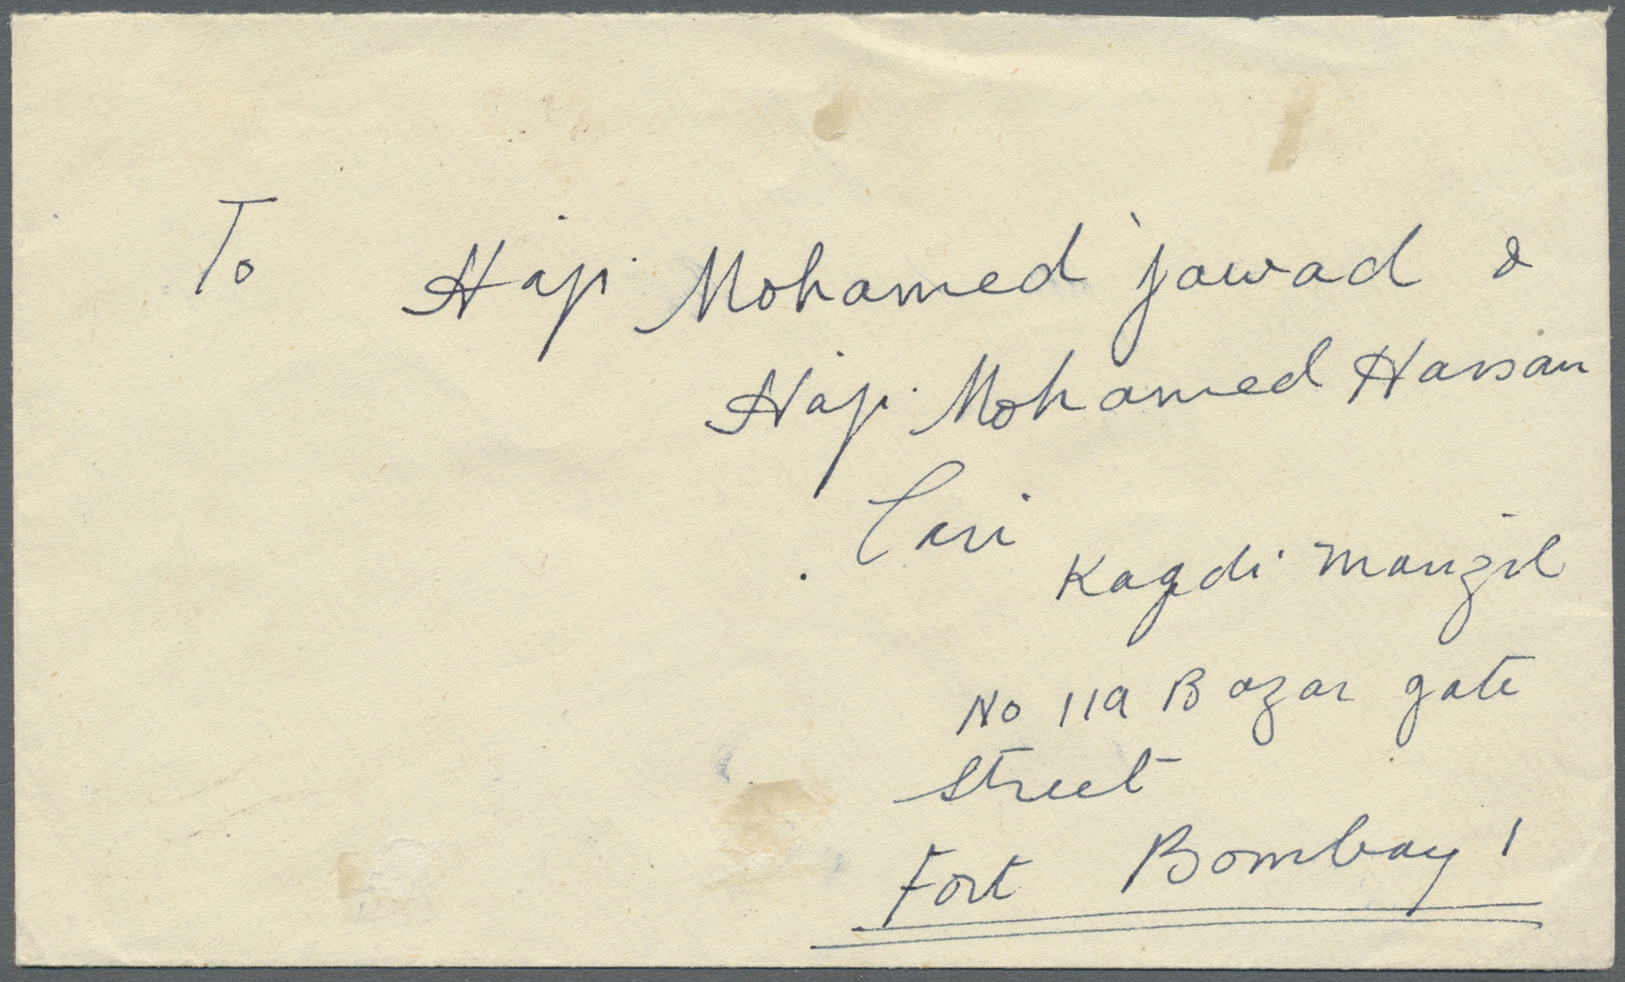 To Haji Mohamed Jawad &
Haji Mohamed Hassan
Lari
Kagdi Manzil
No 119 Bazar gate
Street
Fort Bombay 1